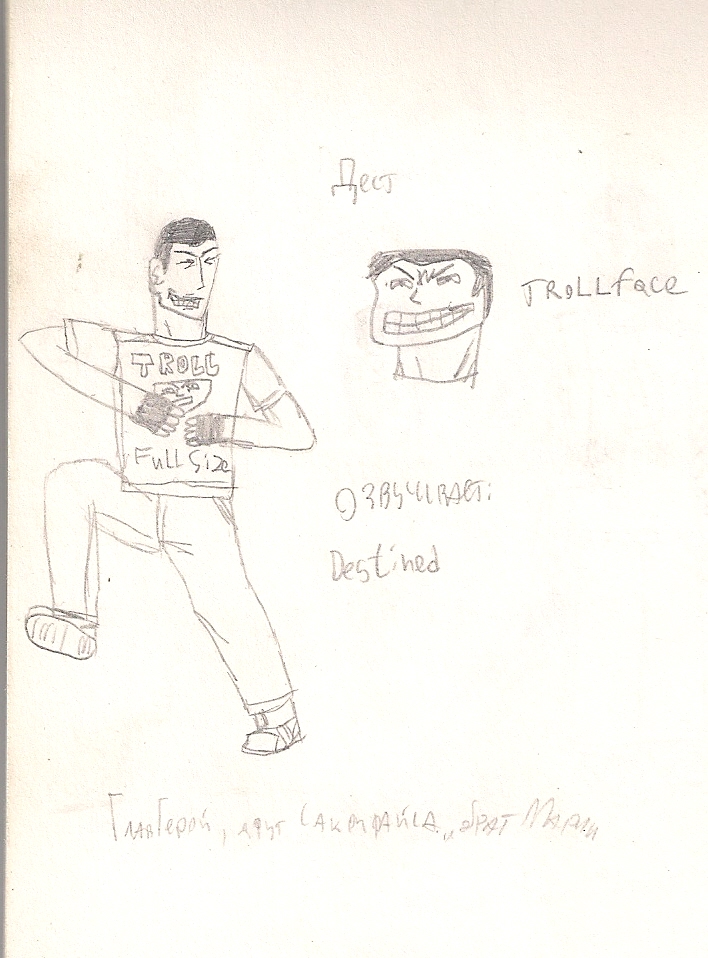 Дест
TROLLface
TROLL
Full Size
Озвучивает:
Destined
ГлавГерой, друг Сакурайса, брат Марии